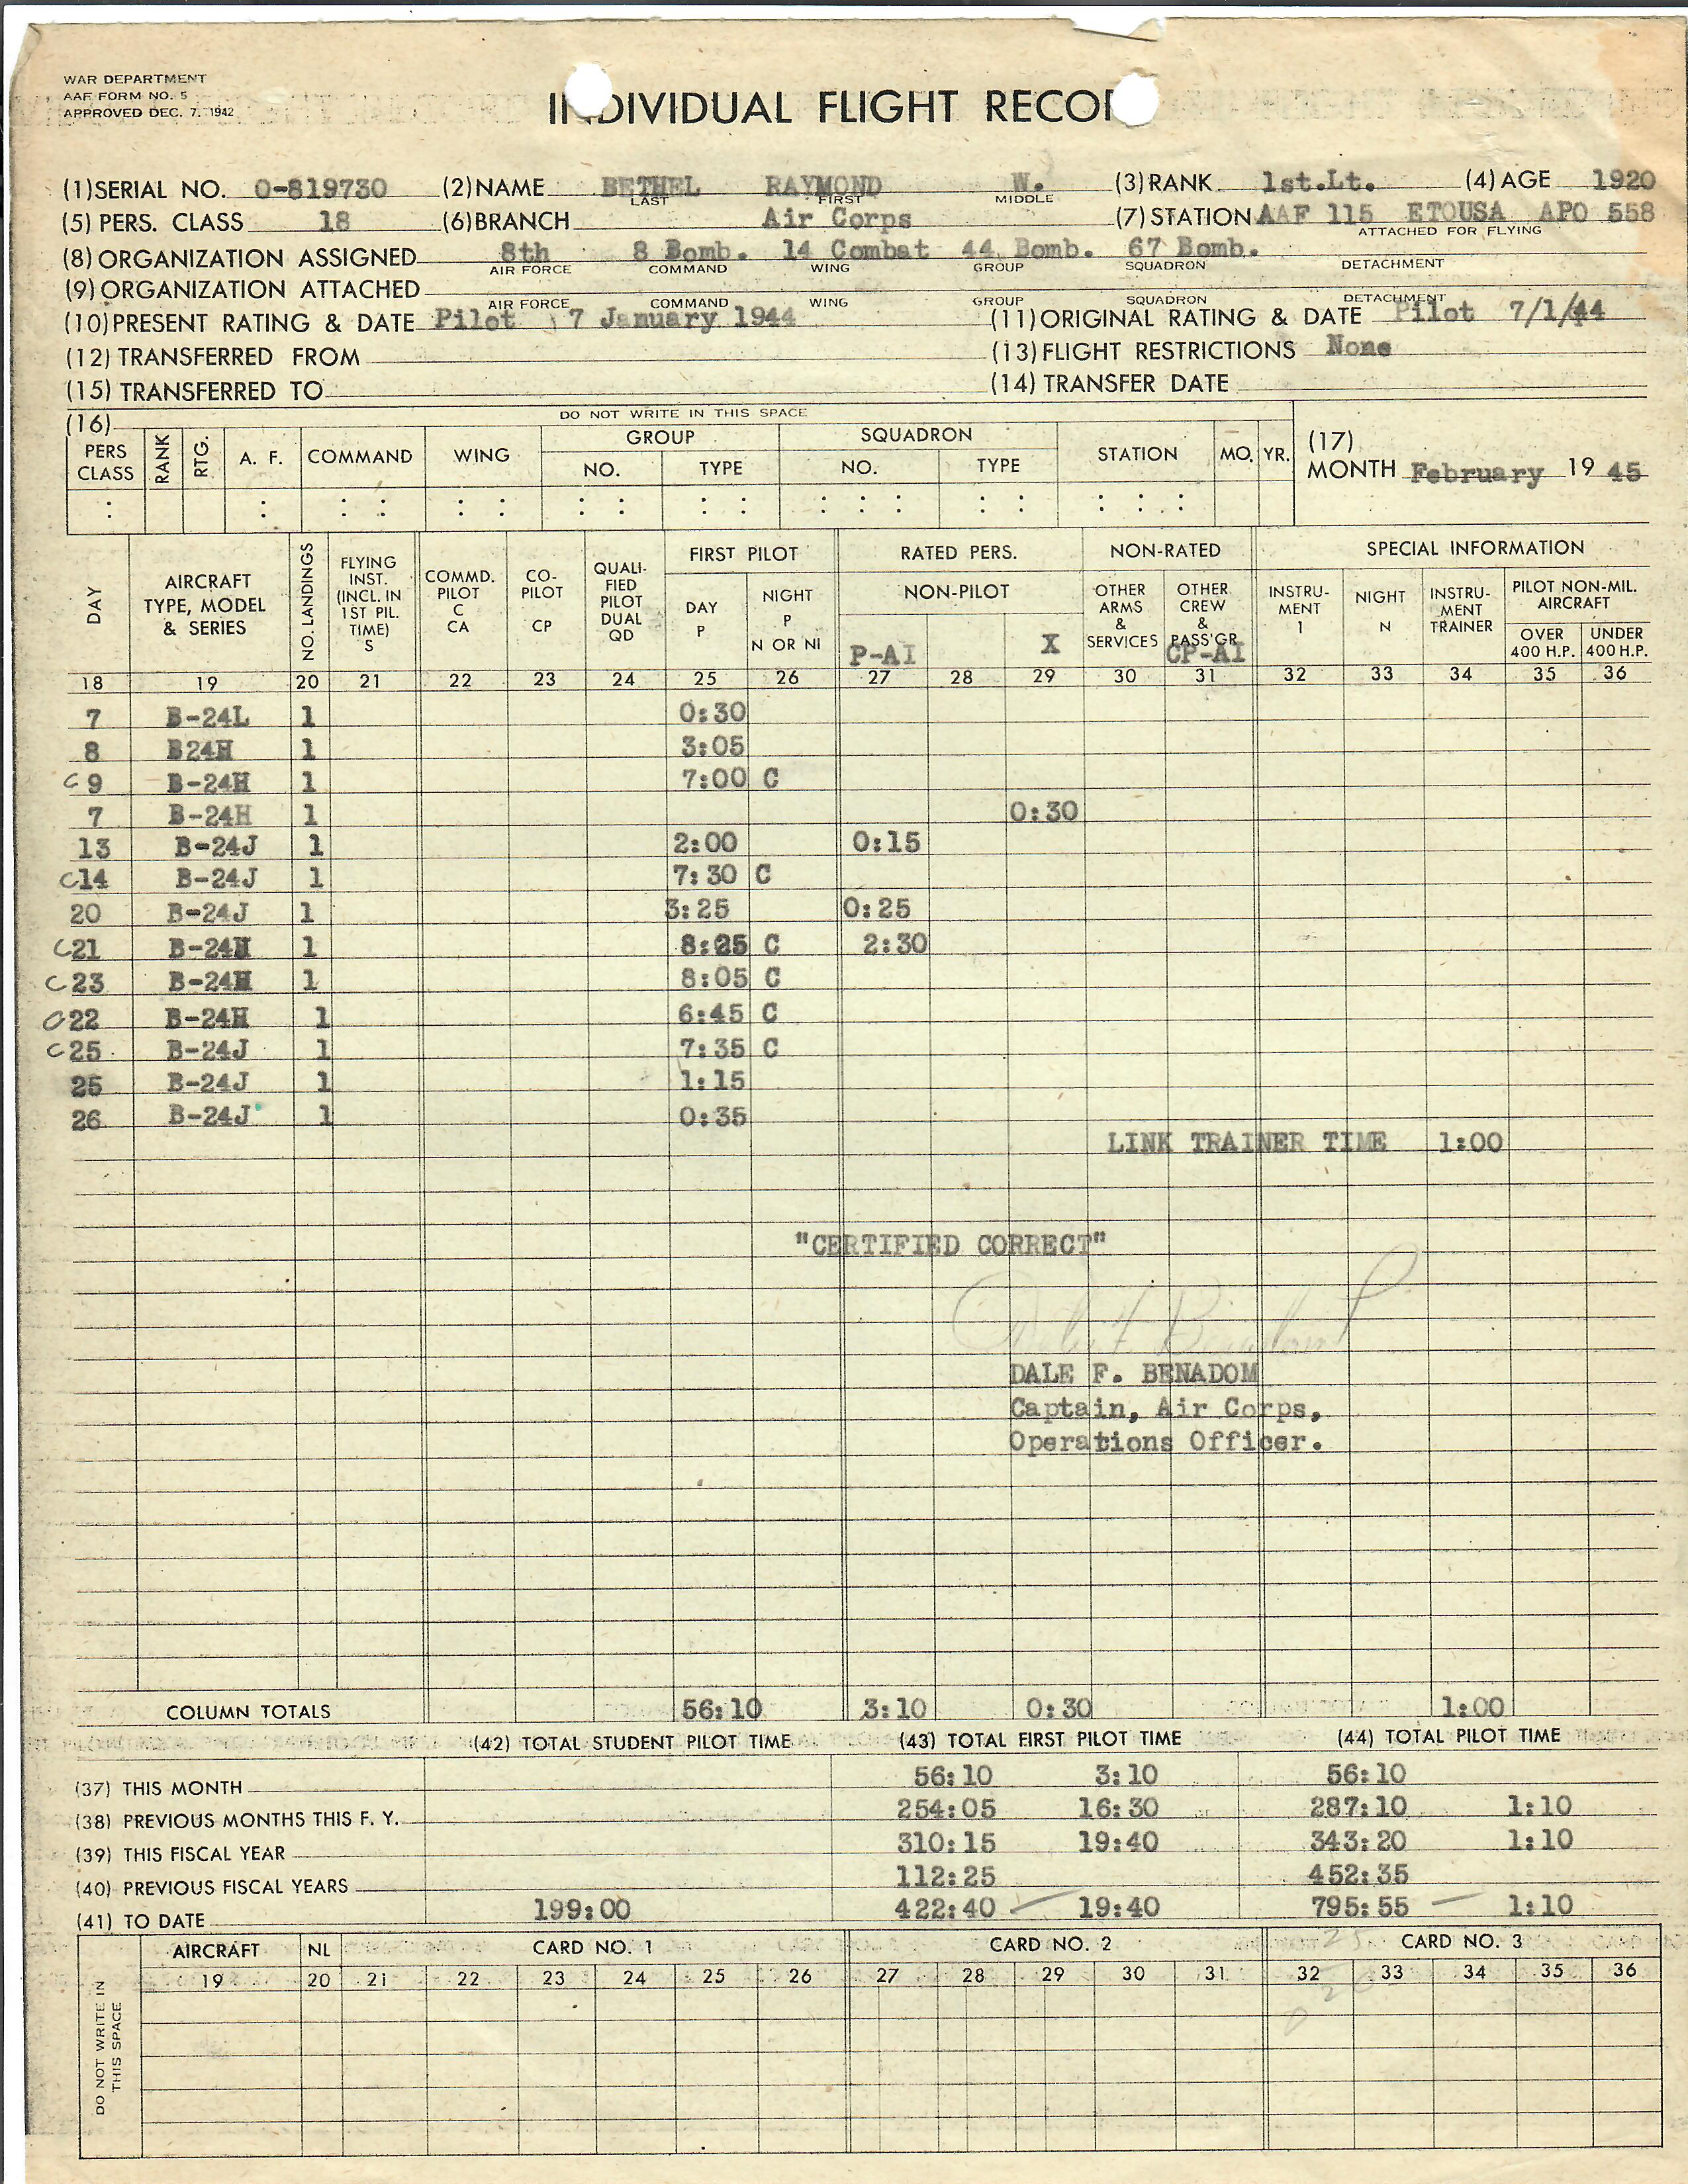 WAR DEPARTMENT
AAF FORM NO. 5
APPROVED DEC. 7, 1942
INDIVIDUAL FLIGHT RECOR
(1) SERIAL NO. O-819730 (2) NAME BETHEL RAYMOND W. (3) RANK 1st.Lt. (4) AGE 1920
LAST FIRST MIDDLE
(5) PERS. CLASS 18 (6) BRANCH Air Corps (7) STATION AAF 115 ETOUSA APO 558
ATTACHED FOR FLYING
(8) ORGANIZATION ASSIGNED 8th 8 Bomb. 14 Combat 44 Bomb. 67 Bomb.
AIR FORCE COMMAND WING GROUP SQUADRON DETACHMENT
(9) ORGANIZATION ATTACHED
AIR FORCE COMMAND WING GROUP SQUADRON DETACHMENT
(10) PRESENT RATING & DATE Pilot 7 January 1944 (11) ORIGINAL RATING & DATE Pilot 7/1/44
(12) TRANSFERRED FROM (13) FLIGHT RESTRICTIONS None
(15) TRANSFERRED TO (14) TRANSFER DATE
(16) DO NOT WRITE IN THIS SPACE
PERS CLASS RANK RTG. A. F. COMMAND WING GROUP NO. TYPE SQUADRON NO. TYPE STATION MO. YR.
(17) MONTH February 19 45
DAY AIRCRAFT TYPE, MODEL & SERIES NO. LANDINGS FLYING INST. (INCL. IN 1ST PIL. TIME) S COMMD. PILOT C CA CO-PILOT CP QUALI-FIED PILOT DUAL QD FIRST PILOT DAY P NIGHT P N OR NI RATED PERS. NON-PILOT P-AI X NON-RATED OTHER ARMS & SERVICES OTHER CREW & PASS'GR CP-AI SPECIAL INFORMATION INSTRU-MENT I NIGHT N INSTRU-MENT TRAINER PILOT NON-MIL. AIRCRAFT OVER 400 H.P. UNDER 400 H.P.
18 19 20 21 22 23 24 25 26 27 28 29 30 31 32 33 34 35 36
7 B-24L 1 0:30
8 B24H 1 3:05
C 9 B-24H 1 7:00 C
7 B-24H 1 0:30
13 B-24J 1 2:00 0:15
C 14 B-24J 1 7:30 C
20 B-24J 1 3:25 0:25
C 21 B-24H 1 8:25 C 2:30
C 23 B-24H 1 8:05 C
C 22 B-24H 1 6:45 C
C 25 B-24J 1 7:35 C
25 B-24J 1 1:15
26 B-24J 1 0:35
LINK TRAINER TIME 1:00
"CERTIFIED CORRECT"
DALE F. BENADOM
Captain, Air Corps,
Operations Officer.
COLUMN TOTALS 56:10 3:10 0:30 1:00
(42) TOTAL STUDENT PILOT TIME (43) TOTAL FIRST PILOT TIME (44) TOTAL PILOT TIME
(37) THIS MONTH 56:10 3:10 56:10
(38) PREVIOUS MONTHS THIS F. Y. 254:05 16:30 287:10 1:10
(39) THIS FISCAL YEAR 310:15 19:40 343:20 1:10
(40) PREVIOUS FISCAL YEARS 112:25 452:35
(41) TO DATE 199:00 422:40 19:40 795:55 1:10
DO NOT WRITE IN THIS SPACE
AIRCRAFT NL CARD NO. 1 CARD NO. 2 CARD NO. 3
19 20 21 22 23 24 25 26 27 28 29 30 31 32 33 34 35 36